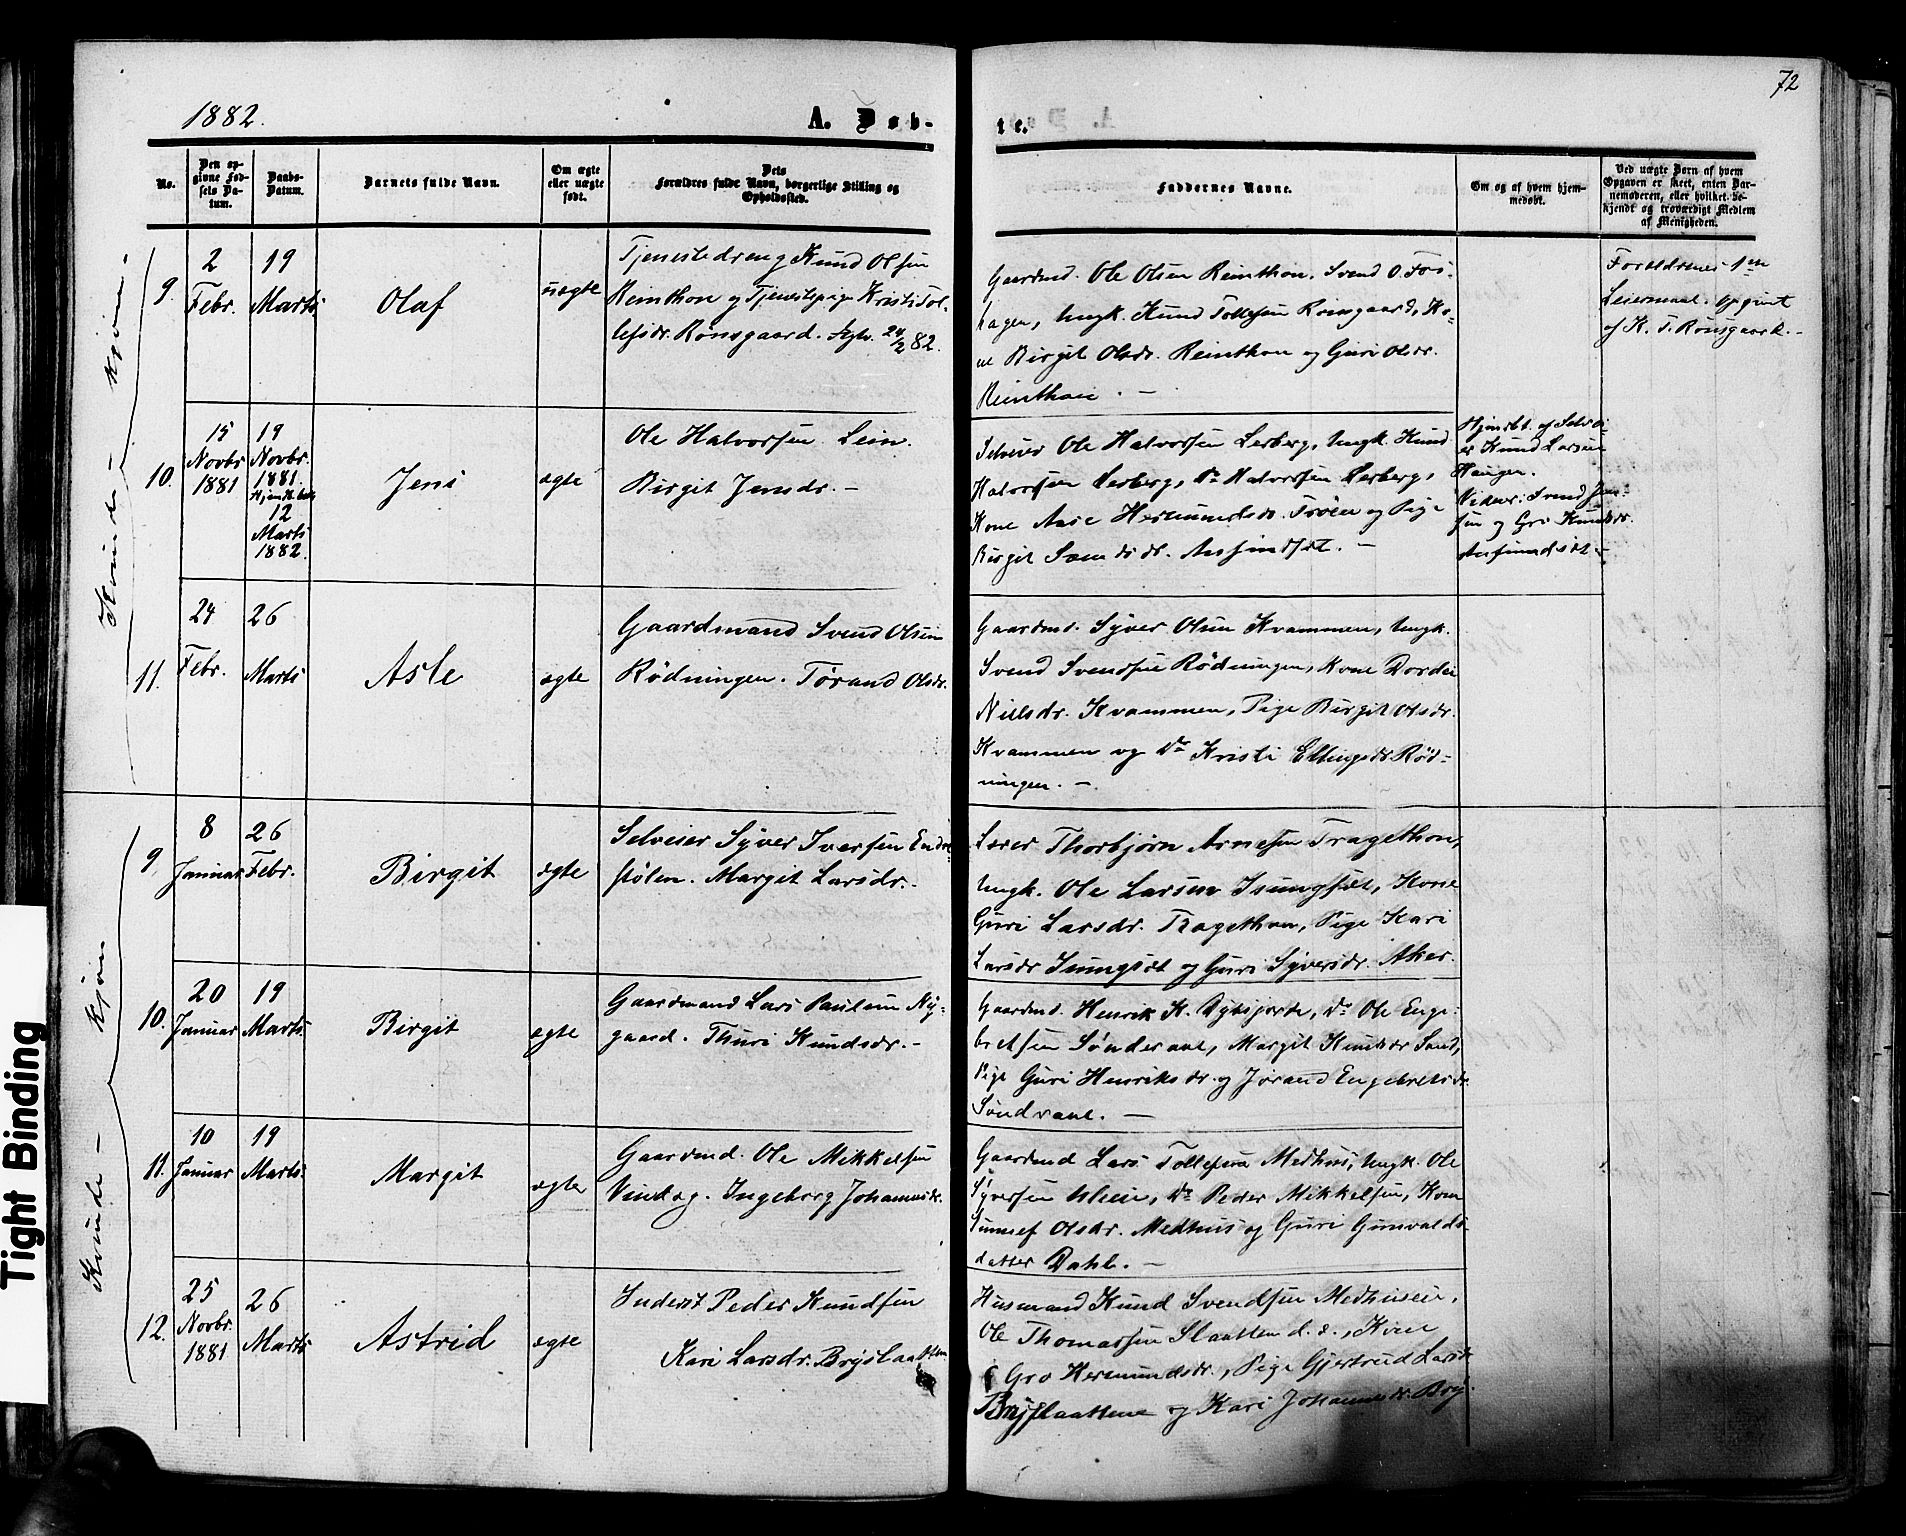 72
1882.
A. Døb-
te.
No.
Den op-
givne Fød-
sels Da-
tum.
Daabs-
Datum.
Barnets fulde Navn.
Om ægte
eller uægte
født.
Dets
Forældres fulde Navn, borgerlige Stilling og
Opholdssted.
Faddernes Navne.
Om og af hvem hjem-
medøbt.
Ved uægte Børn af hvem
Opgaven er skeet, enten Bar-
nemoderen, eller hvilket be-
kjendt og troværdigt Medlem
af Menigheden.
Kvinde - kjøn -
9.
2
Febr.
19
Marts
Olaf
uægte
Tjenestedreng Knud Olsen
Reinthon og Tjenestepige Kristi Tol-
lefsdr. Rønsgaard. 24/2 82.
Gaardmd. Ole Olsen Reinthon. Svend O. Fos-
hagen, Ungk. Knud Tollefsen Rønsgaard, Ko-
ne Birgit Olsdr. Reinthon og Guri Olsdr.
Reinthon. -
Forældrenes 1ste
Leiermaal. Opgivet
af K. T. Rønsgaard. -
10.
15
Novbr
1881
19
Novbr.
1881.
Hjemdøbt
12
Marts
1882.
Jens
ægte
Ole Halvorsen Lein.
Birgit Jensdr. -
Selveier Ole Halvorsen Lerberg, Ungk. Knud
Halvorsen Lerberg, Do Halvorsen Lerberg,
Kone Aase Hermundsdr. Trøen og Pige
Birgit Svendsdr. Ansindset. -
Hjemdbt. af Selvei
er Knud Larsen
Haugen.
Vidner: Svend Jen-
sen og Gro Knudsdr.
Anfinnsdset -
11.
24
Febr.
26
Marts
Asle
ægte
Gaardmand Svend Olsen
Rødningen. Tørand Olsdr.
Gaardmd. Syver Olsen Kvammen, Ungk.
Svend Svendsen Rødningen, Kone Dordei
Nielsdr. Kvammen, Pige Birgit Olsdr.
Kvammen og Do Kristi Ellingsdr Rød-
ningen. -
Kvinde - kjøn
9.
8
Januar
26
Febr.
Birgit
ægte
Selveier Syver Iversen Endre
stølen. Margit Larsdr. -
Lærer Thorbjørn Arnesen Tragethon,
Ungk. Ole Larsen Isungset, Kone
Guri Larsdr. Tragethon, Pige Kari
Larsdr Isungset og Guri Syversdr. Aker.
10.
20
Januar
19
Marts.
Birgit
ægte
Gaardmand Lars Paulsen Ny-
gaard. Thuri Knudsdr. -
Gaardmd. Henrik K. Dybsjorde, Do Ole Enge-
bretsen Sønderaal, Margit Knudsdr Sand,
Pige Guri Henriksdr. og Jørand Engebretsdr
Søndraal. -
11.
10
Januar
19
Marts.
Margit
ægte
Gaardmd. Ole Mikkelsen
Vindeg. Ingeborg Johannesdr.
Gaardmd Lars Tollefsen Medhus, Ungk. Ole
Syversen Uleie, Do Peder Mikkelsen, Kone
Sunnef Olsdr. Medhus og Guri Gunvalds-
datter Dahle. -
12.
25
Novbr.
1881
26
Marts
Astrid
ægte
Inderst Peder Knudsen
Kari Larsdr. Bryslaatten
Husmand Knud Svendsen Medhuseie,
Ole Thomassen Slaatten d. d., Kone
Gro Hermundsdr., Pige Gjertrud Larsdr
Bryslaattene og Kari Johannesdr. Bry-
Tight Binding